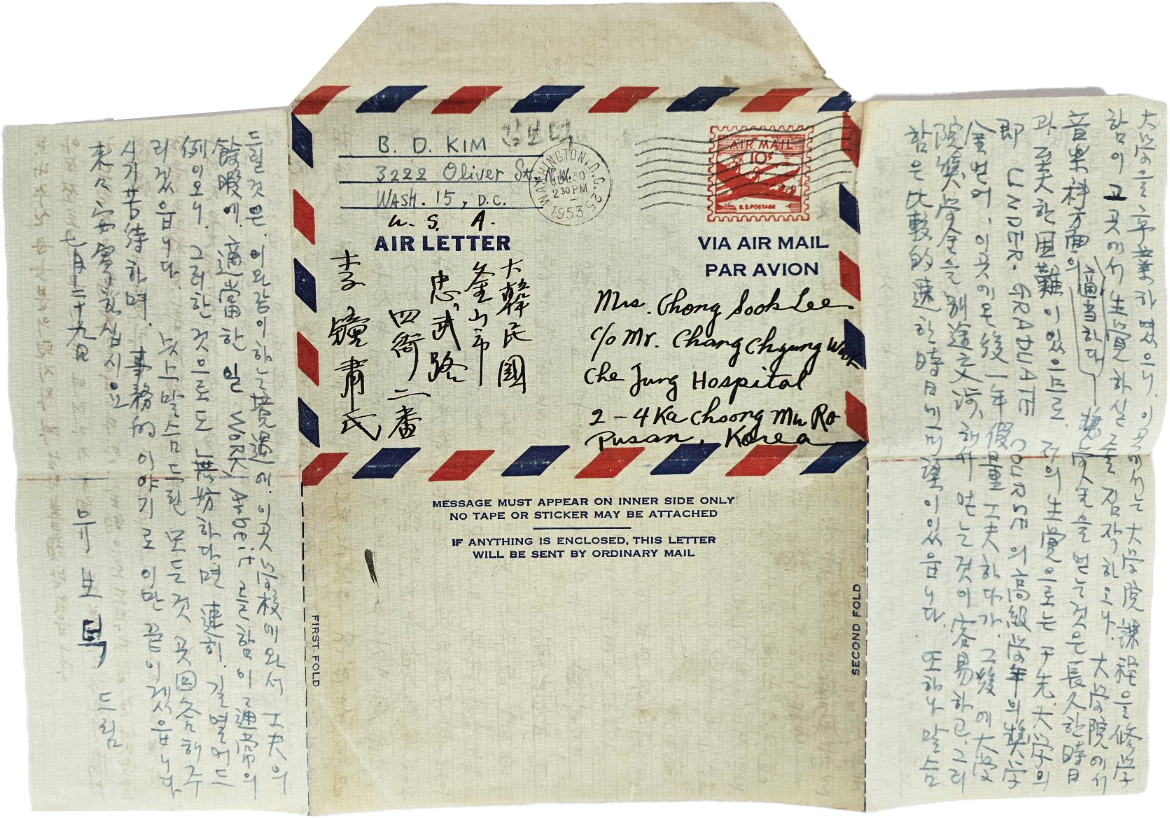 B. D. KIM
3222 Oliver St., N.W.
WASH. 15, D.C.
U. S. A.
WASHINGTON, D.C.
30
2 30 PM
1953
AIR MAIL
10¢
U.S. POSTAGE
AIR LETTER
VIA AIR MAIL
PAR AVION
Mrs. Chong Sook Lee
c/o Mr. Chang Chyung
Che Jung Hospital
2-4 Ka Choong Mu Ro
Pusan, Korea
大韓民國
釜山市
忠武路
四街二番
李 肅氏
MESSAGE MUST APPEAR ON INNER SIDE ONLY
NO TAPE OR STICKER MAY BE ATTACHED
IF ANYTHING IS ENCLOSED, THIS LETTER
WILL BE SENT BY ORDINARY MAIL
FIRST FOLD
SECOND FOLD
大学을 卒業하였으니, 이곳에서는 大学院 課程을 修学
함이 그 곳에서 生覚하실 줄 짐작하오나 大学院에서
音楽科方面의 適当하다 奬学金을 얻는것은 長久한 時日
과 至大한 困難이 있으므로 저의 生覚으로는 于先 大学의
即 UNDER-GRADUATE COURSE의 高級学年의 奬学
金 얻어, 이곳에 온 後 一年 假量 工夫하다가 그 後에 大学
院 奬学金을 別途 交涉해서 얻는 것이 容易하고 그리
함은 比較的 速한 時日에 希望이 있읍니다. 또 하나 말슴
드릴것은, 이와같이 하는 境遇에, 이곳 学校에 와서 工夫의
餘暇에 適當한 일 WORK 를 함이 通常의
例이오니, 그러한 것으로도 無妨하다면 速히, 길 열어드
리겠읍니다. 以上 말슴드린 모든것 곳 回答해주
시기 苦待하며, 事務的 이야기로 이만 끝이겠읍니다.
安寧하십시요
七月二十九日
보덕 드림